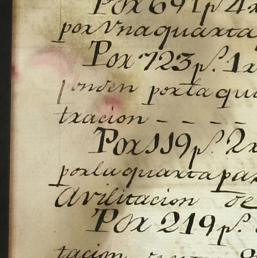 Por 691 p.s 4 r
por Vna quarta
Por 723 p.s 1 r
ponden por la qu
tracion - - - -
Por 119 p.s 2 r
por la quarta par
Avilitacion de
Por 219 p.s
tacion